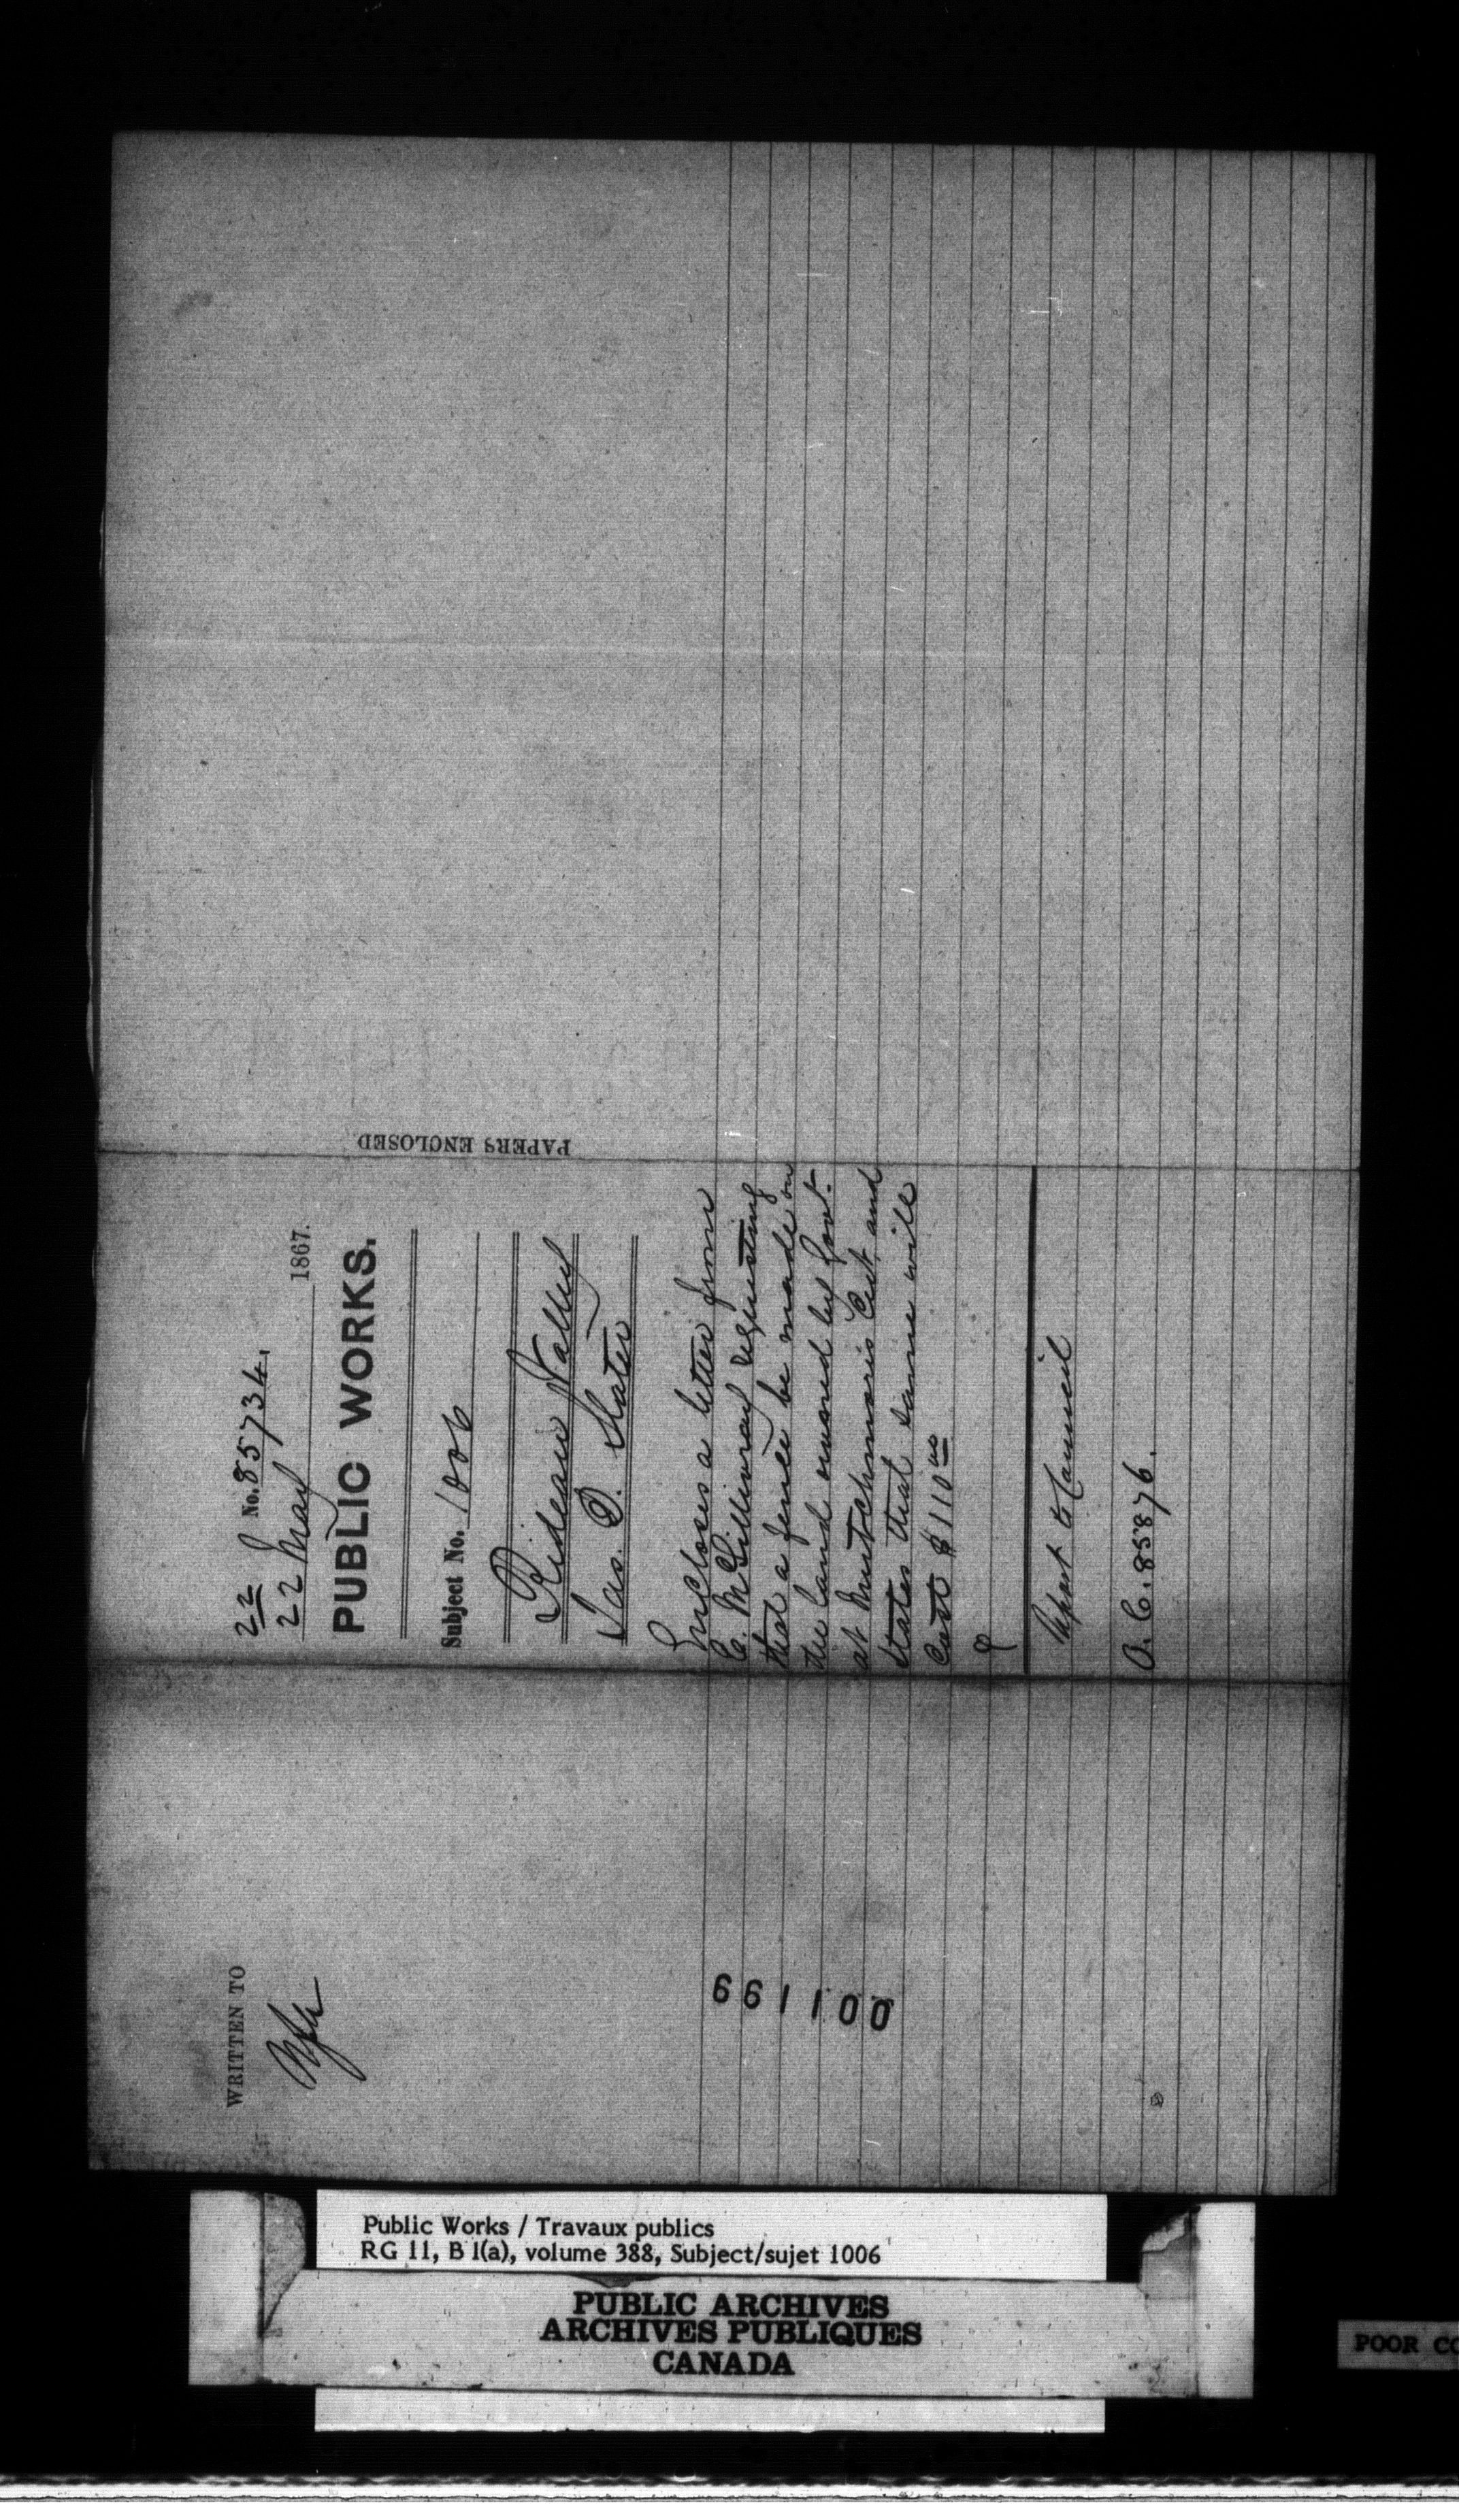 22 No. 85734.
22 May 1867.
PUBLIC WORKS.
Subject No. 1006
Rideau Valley
Jas. D. Slater
Encloses a letter from
C. McGillivray requesting
that a fence be made on
the land owned by Govt.
at Mutchmor's Cut, and
States that same will
Cost $110 00
Report to Council
O. C. 85876.
PAPERS ENCLOSED
WRITTEN TO
001199
Public Works / Travaux publics
RG 11, B 1(a), volume 388, Subject/sujet 1006
PUBLIC ARCHIVES
ARCHIVES PUBLIQUES
CANADA
POOR CO